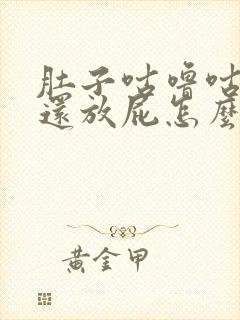 肚子咕嚕咕
還放屁怎麼
黃金甲